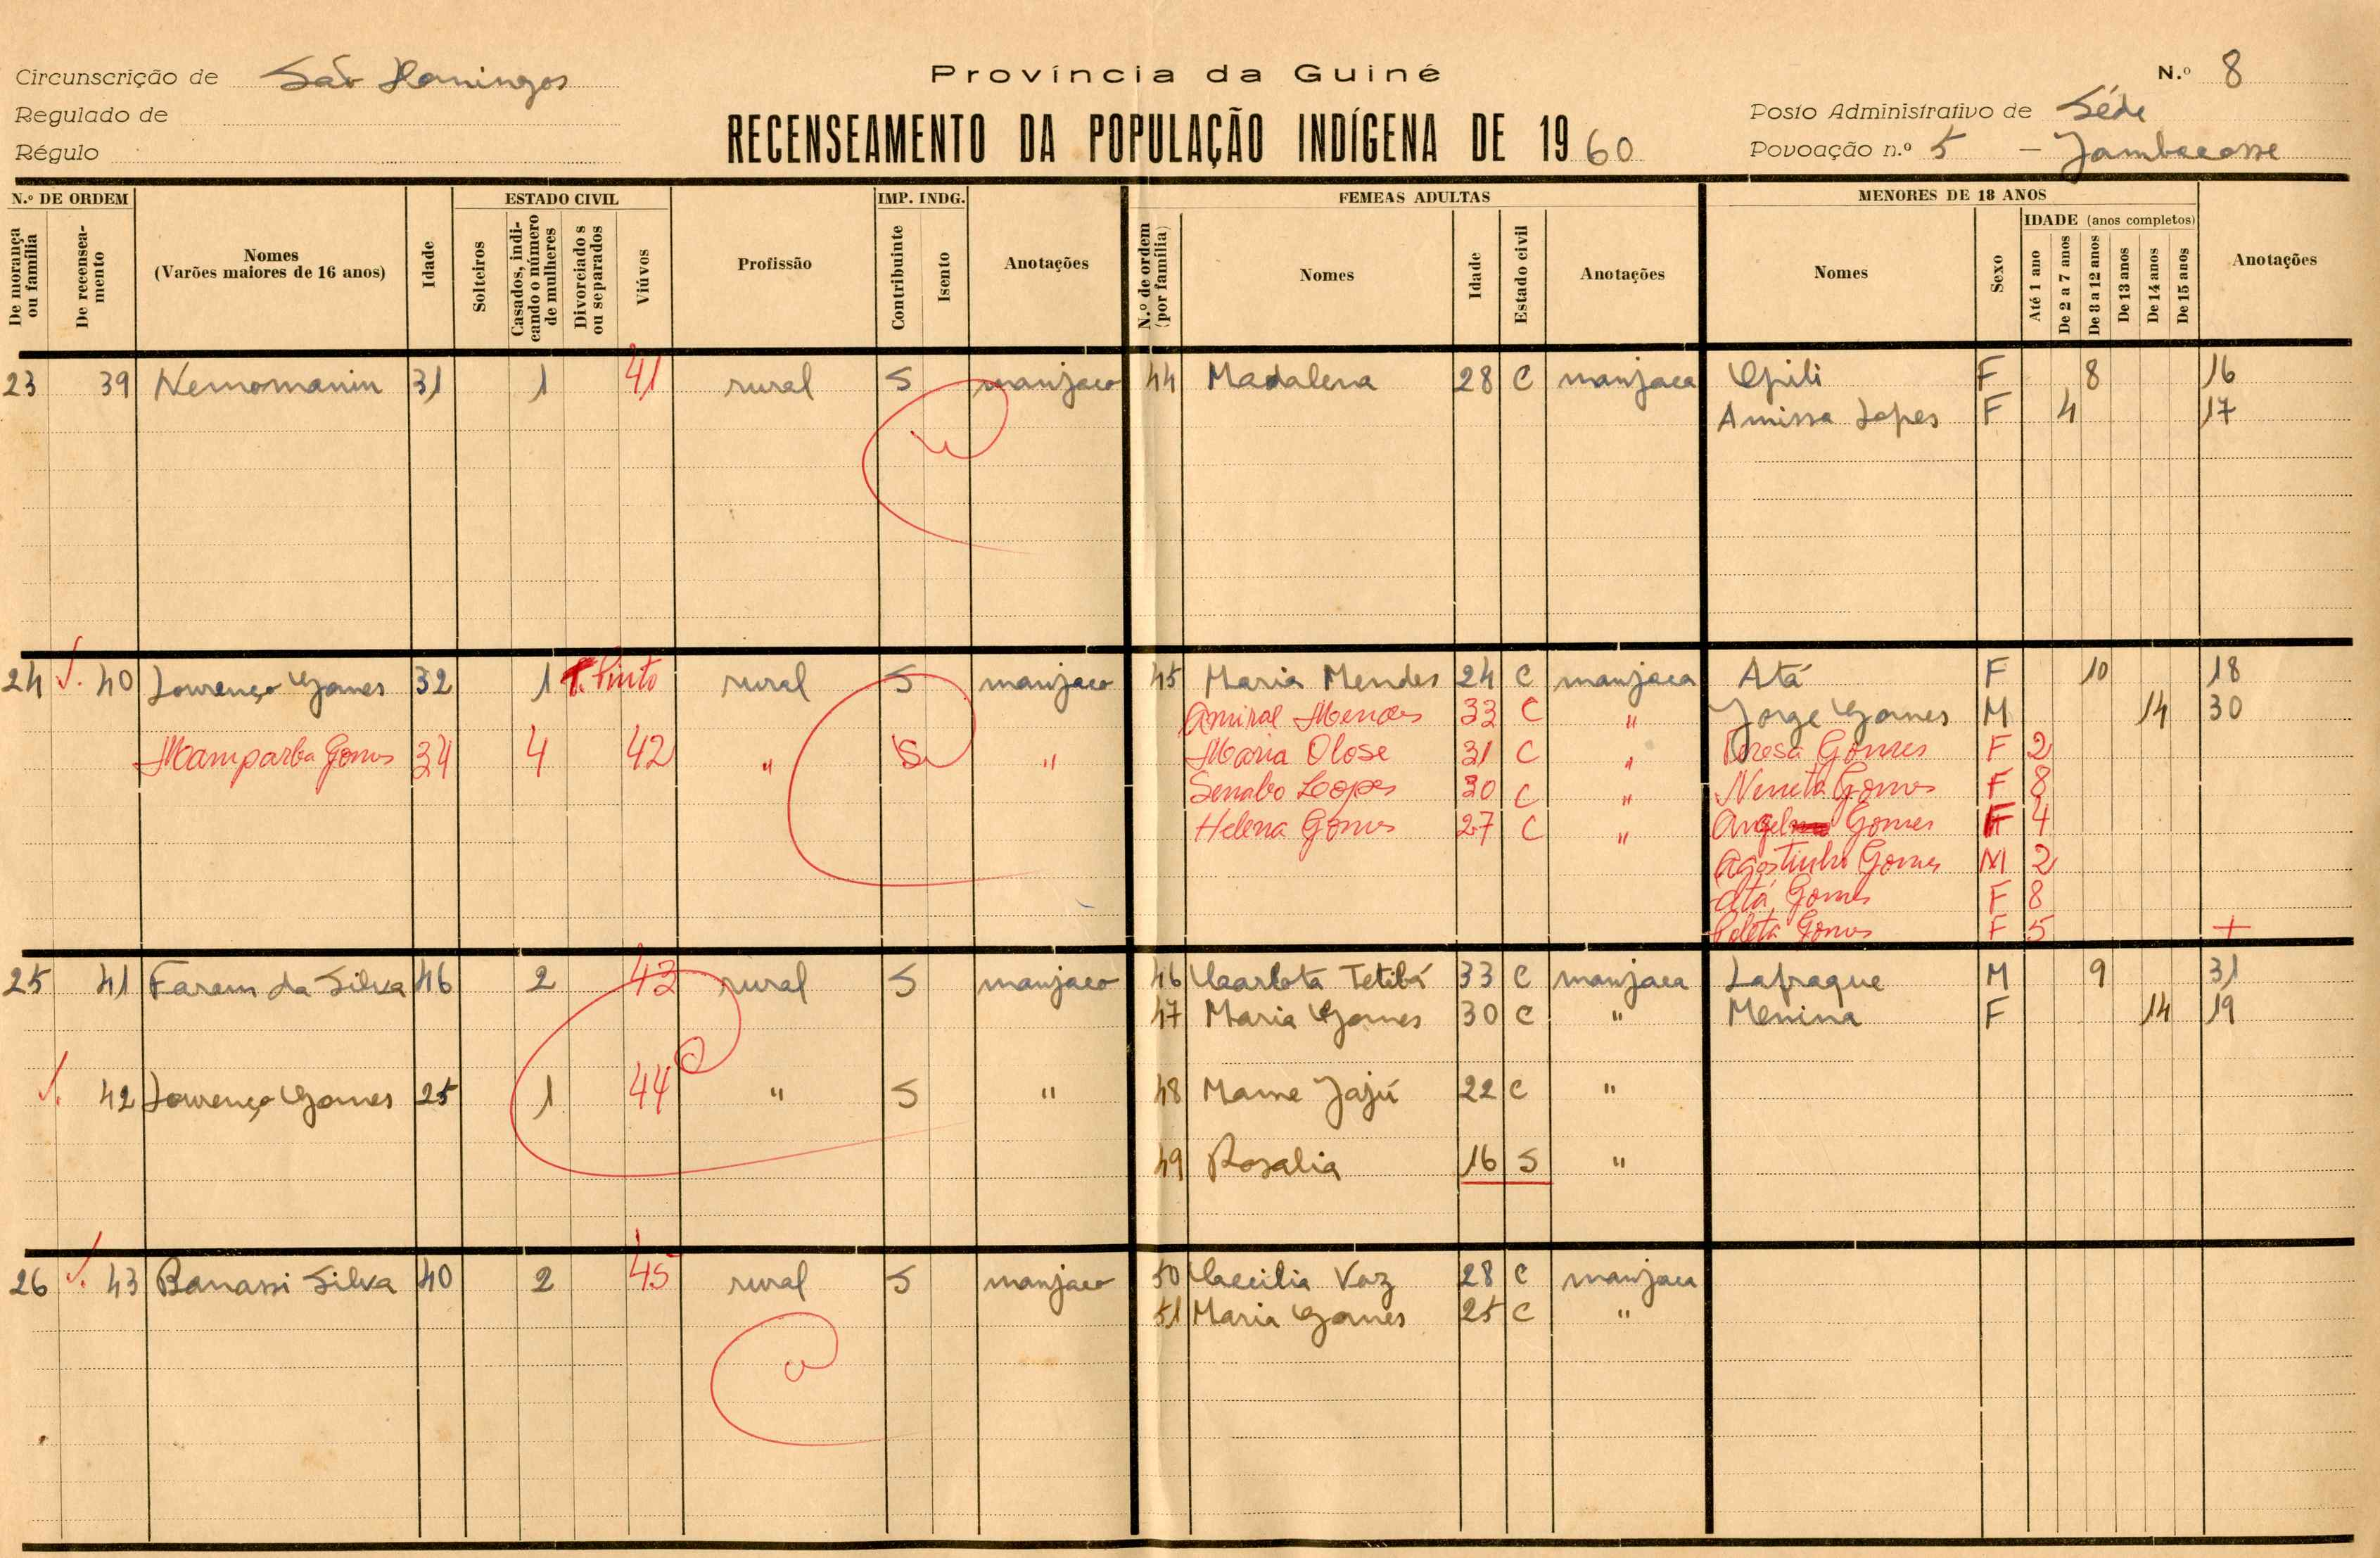 Província da Guiné
N.º 8
Circunscrição de São Domingos
Regulado de
Régulo
RECENSEAMENTO DA POPULAÇÃO INDÍGENA DE 1960
Posto Administrativo de Séde
Povoação n.º 5 – Jambecasse
N.º DE ORDEM
De morança ou família
De recenseamento
Nomes
(Varões maiores de 16 anos)
Idade
ESTADO CIVIL
Solteiros
Casados, indicando o número de mulheres
Divorciados ou separados
Viúvos
Profissão
IMP. INDG.
Contribuinte
Isento
Anotações
FEMEAS ADULTAS
N.º de ordem (por família)
Nomes
Idade
Estado civil
Anotações
MENORES DE 18 ANOS
Nomes
Sexo
IDADE (anos completos)
Até 1 ano
De 2 a 7 anos
De 8 a 12 anos
De 13 anos
De 14 anos
De 15 anos
Anotações
23 39 Nemomanim 31 1 41 rural S manjaco 44 Madalena 28 C manjaca F 8 16
Amissa Lopes F 4 17
24 40 Lourenço Gomes 32 1 Pinto rural S manjaco 45 Maria Mendes 24 C manjaca Atá F 10 18
Amiral Mendes 33 C " Jorge Gomes M 14 30
Mamparba Gomes 34 4 42 " S " Maria Olose 31 C " Teresa Gomes F 2
Senabo Lopes 30 C " Neneta Gomes F 8
Helena Gomes 27 C " Gomes F 4
Agostinho Gomes M 2
Atá Gomes F 8
Poleta Gomes F 5 +
25 41 Farem da Silva 46 2 43 rural S manjaco 46 Carlota Tetibá 33 C manjaca Lafraque M 9 31
47 Maria Gomes 30 C " Menina F 14 19
42 Lourenço Gomes 25 1 44 " S " 48 Mame Jajú 22 C "
49 Rosalia 16 S "
26 43 Banassi Silva 40 2 45 rural S manjaco 50 Caecilia Vaz 28 C manjaca
51 Maria Gomes 25 C "